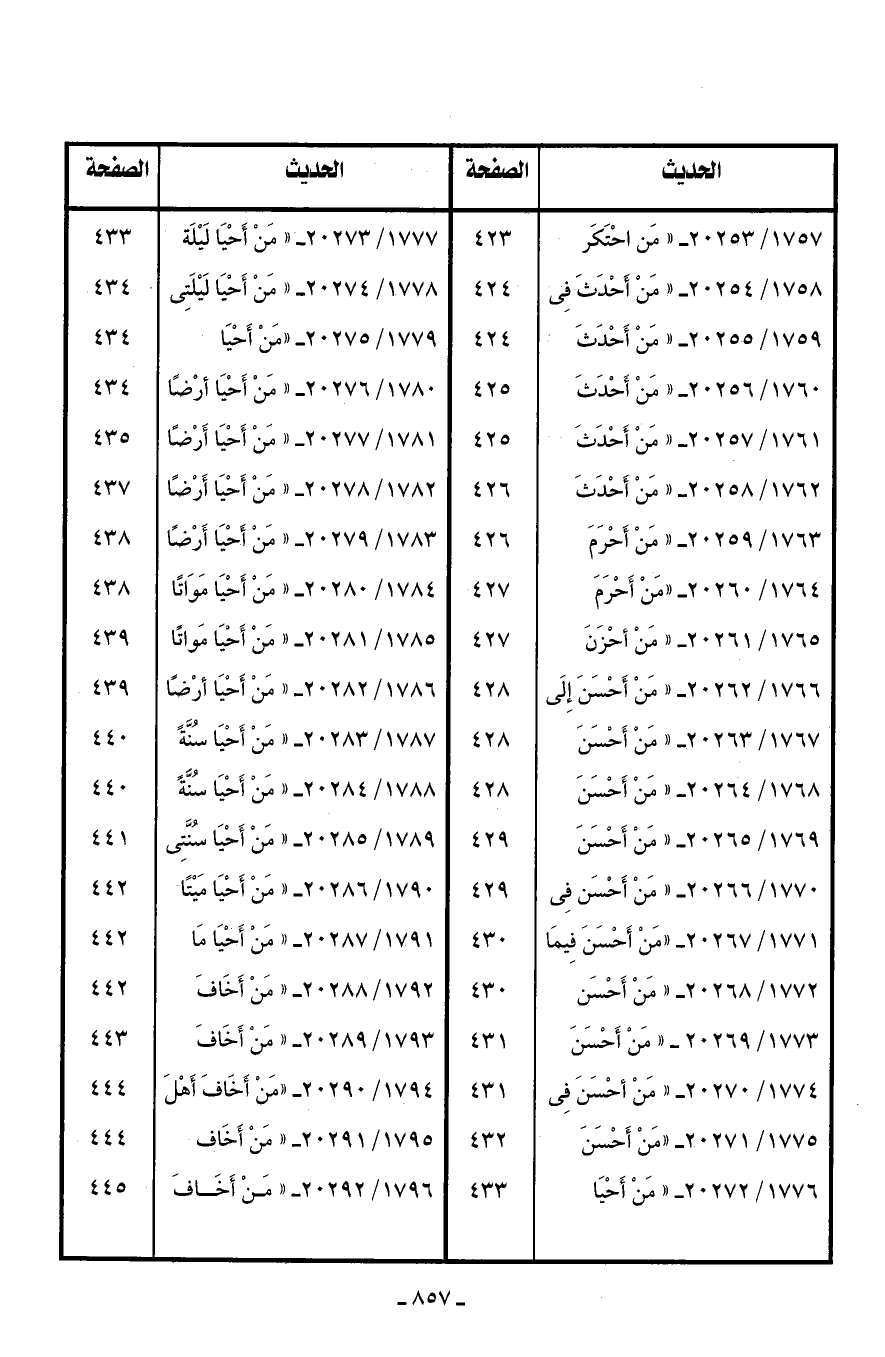 الحديث الصفحة الحديث الصفحة
١٧٥٧/ ٢٠٢٥٣ـ « مَن احْتَكَرَ ٤٢٣ ١٧٧٧/ ٢٠٢٧٣ـ « مَنْ أَحْيَا لَيْلَة ٤٣٣
١٧٥٨/ ٢٠٢٥٤ـ « مَنْ أَحْدَثَ فِى ٤٢٤ ١٧٧٨/ ٢٠٢٧٤ـ « مَنْ أَحْيَا لَيْلَتِى ٤٣٤
١٧٥٩/ ٢٠٢٥٥ـ « مَنْ أَحْدَثَ ٤٢٤ ١٧٧٩/ ٢٠٢٧٥ـ «مَنْ أَحْيَا ٤٣٤
١٧٦٠/ ٢٠٢٥٦ـ « مَنْ أَحْدَثَ ٤٢٥ ١٧٨٠/ ٢٠٢٧٦ـ « مَنْ أَحْيَا أرْضًا ٤٣٤
١٧٦١/ ٢٠٢٥٧ـ « مَنْ أَحْدَثَ ٤٢٥ ١٧٨١/ ٢٠٢٧٧ـ « مَنْ أَحْيَا أَرْضًا ٤٣٥
١٧٦٢/ ٢٠٢٥٨ـ « مَنْ أَحْدَثَ ٤٢٦ ١٧٨٢/ ٢٠٢٧٨ـ « مَنْ أَحْيَا أَرْضًا ٤٣٧
١٧٦٣/ ٢٠٢٥٩ـ « مَنْ أَحْرَمَ ٤٢٦ ١٧٨٣/ ٢٠٢٧٩ـ « مَنْ أَحْيَا أَرْضًا ٤٣٨
١٧٦٤/ ٢٠٢٦٠ـ «مَنْ أَحْرَمَ ٤٢٧ ١٧٨٤/ ٢٠٢٨٠ـ « مَنْ أَحْيَا مَوَاتًا ٤٣٨
١٧٦٥/ ٢٠٢٦١ـ « مَنْ أحْزَنَ ٤٢٧ ١٧٨٥/ ٢٠٢٨١ـ « مَنْ أَحْيَا مَواتًا ٤٣٩
١٧٦٦/ ٢٠٢٦٢ـ « مَنْ أَحْسَنَ إِلَى ٤٢٨ ١٧٨٦/ ٢٠٢٨٢ـ « مَنْ أَحْيَا أرْضًا ٤٣٩
١٧٦٧/ ٢٠٢٦٣ـ « مَنْ أَحْسَنَ ٤٢٨ ١٧٨٧/ ٢٠٢٨٣ـ « مَنْ أَحْيَا سنُنَّةً ٤٤٠
١٧٦٨/ ٢٠٢٦٤ـ « مَنْ أَحْسَنَ ٤٢٨ ١٧٨٨/ ٢٠٢٨٤ـ « مَنْ أَحْيَا سُنَّةً ٤٤٠
١٧٦٩/ ٢٠٢٦٥ـ « مَنْ أَحْسَنَ ٤٢٩ ١٧٨٩/ ٢٠٢٨٥ـ « مَنْ أَحْيَا سنَُّتِى ٤٤١
١٧٧٠/ ٢٠٢٦٦ـ « مَنْ أَحْسَن فِى ٤٢٩ ١٧٩٠/ ٢٠٢٨٦ـ « مَنْ أَحْيا مَيْتًا ٤٤٢
١٧٧١/ ٢٠٢٦٧ـ «مَنْ أَحْسَنَ فِيمَا ٤٣٠ ١٧٩١/ ٢٠٢٨٧ـ « مَنْ أَحْيَا مَا ٤٤٢
١٧٧٢/ ٢٠٢٦٨ـ « مَنْ أَحْسَن ٤٣٠ ١٧٩٢/ ٢٠٢٨٨ـ « مَنْ أَخَافَ ٤٤٢
١٧٧٣/ ٢٠٢٦٩ ـ « مَنْ أَحْسَنَ ٤٣١ ١٧٩٣/ ٢٠٢٨٩ـ « مَنْ أَخَافَ ٤٤٣
١٧٧٤/ ٢٠٢٧٠ـ « مَنْ أحْسَنَ فِى ٤٣١ ١٧٩٤/ ٢٠٢٩٠ـ «مَنْ أَخَافَ أَهْلَ ٤٤٤
١٧٧٥/ ٢٠٢٧١ـ «مَنْ أَحْسَنَ ٤٣٢ ١٧٩٥/ ٢٠٢٩١ـ « مَنْ أَخَاف ٤٤٤
١٧٧٦/ ٢٠٢٧٢ـ « مَنْ أَحْيَا ٤٣٣ ١٧٩٦/ ٢٠٢٩٢ـ « مَـنْ أَخَـــافَ ٤٤٥
ـ ٨٥٧ ـ